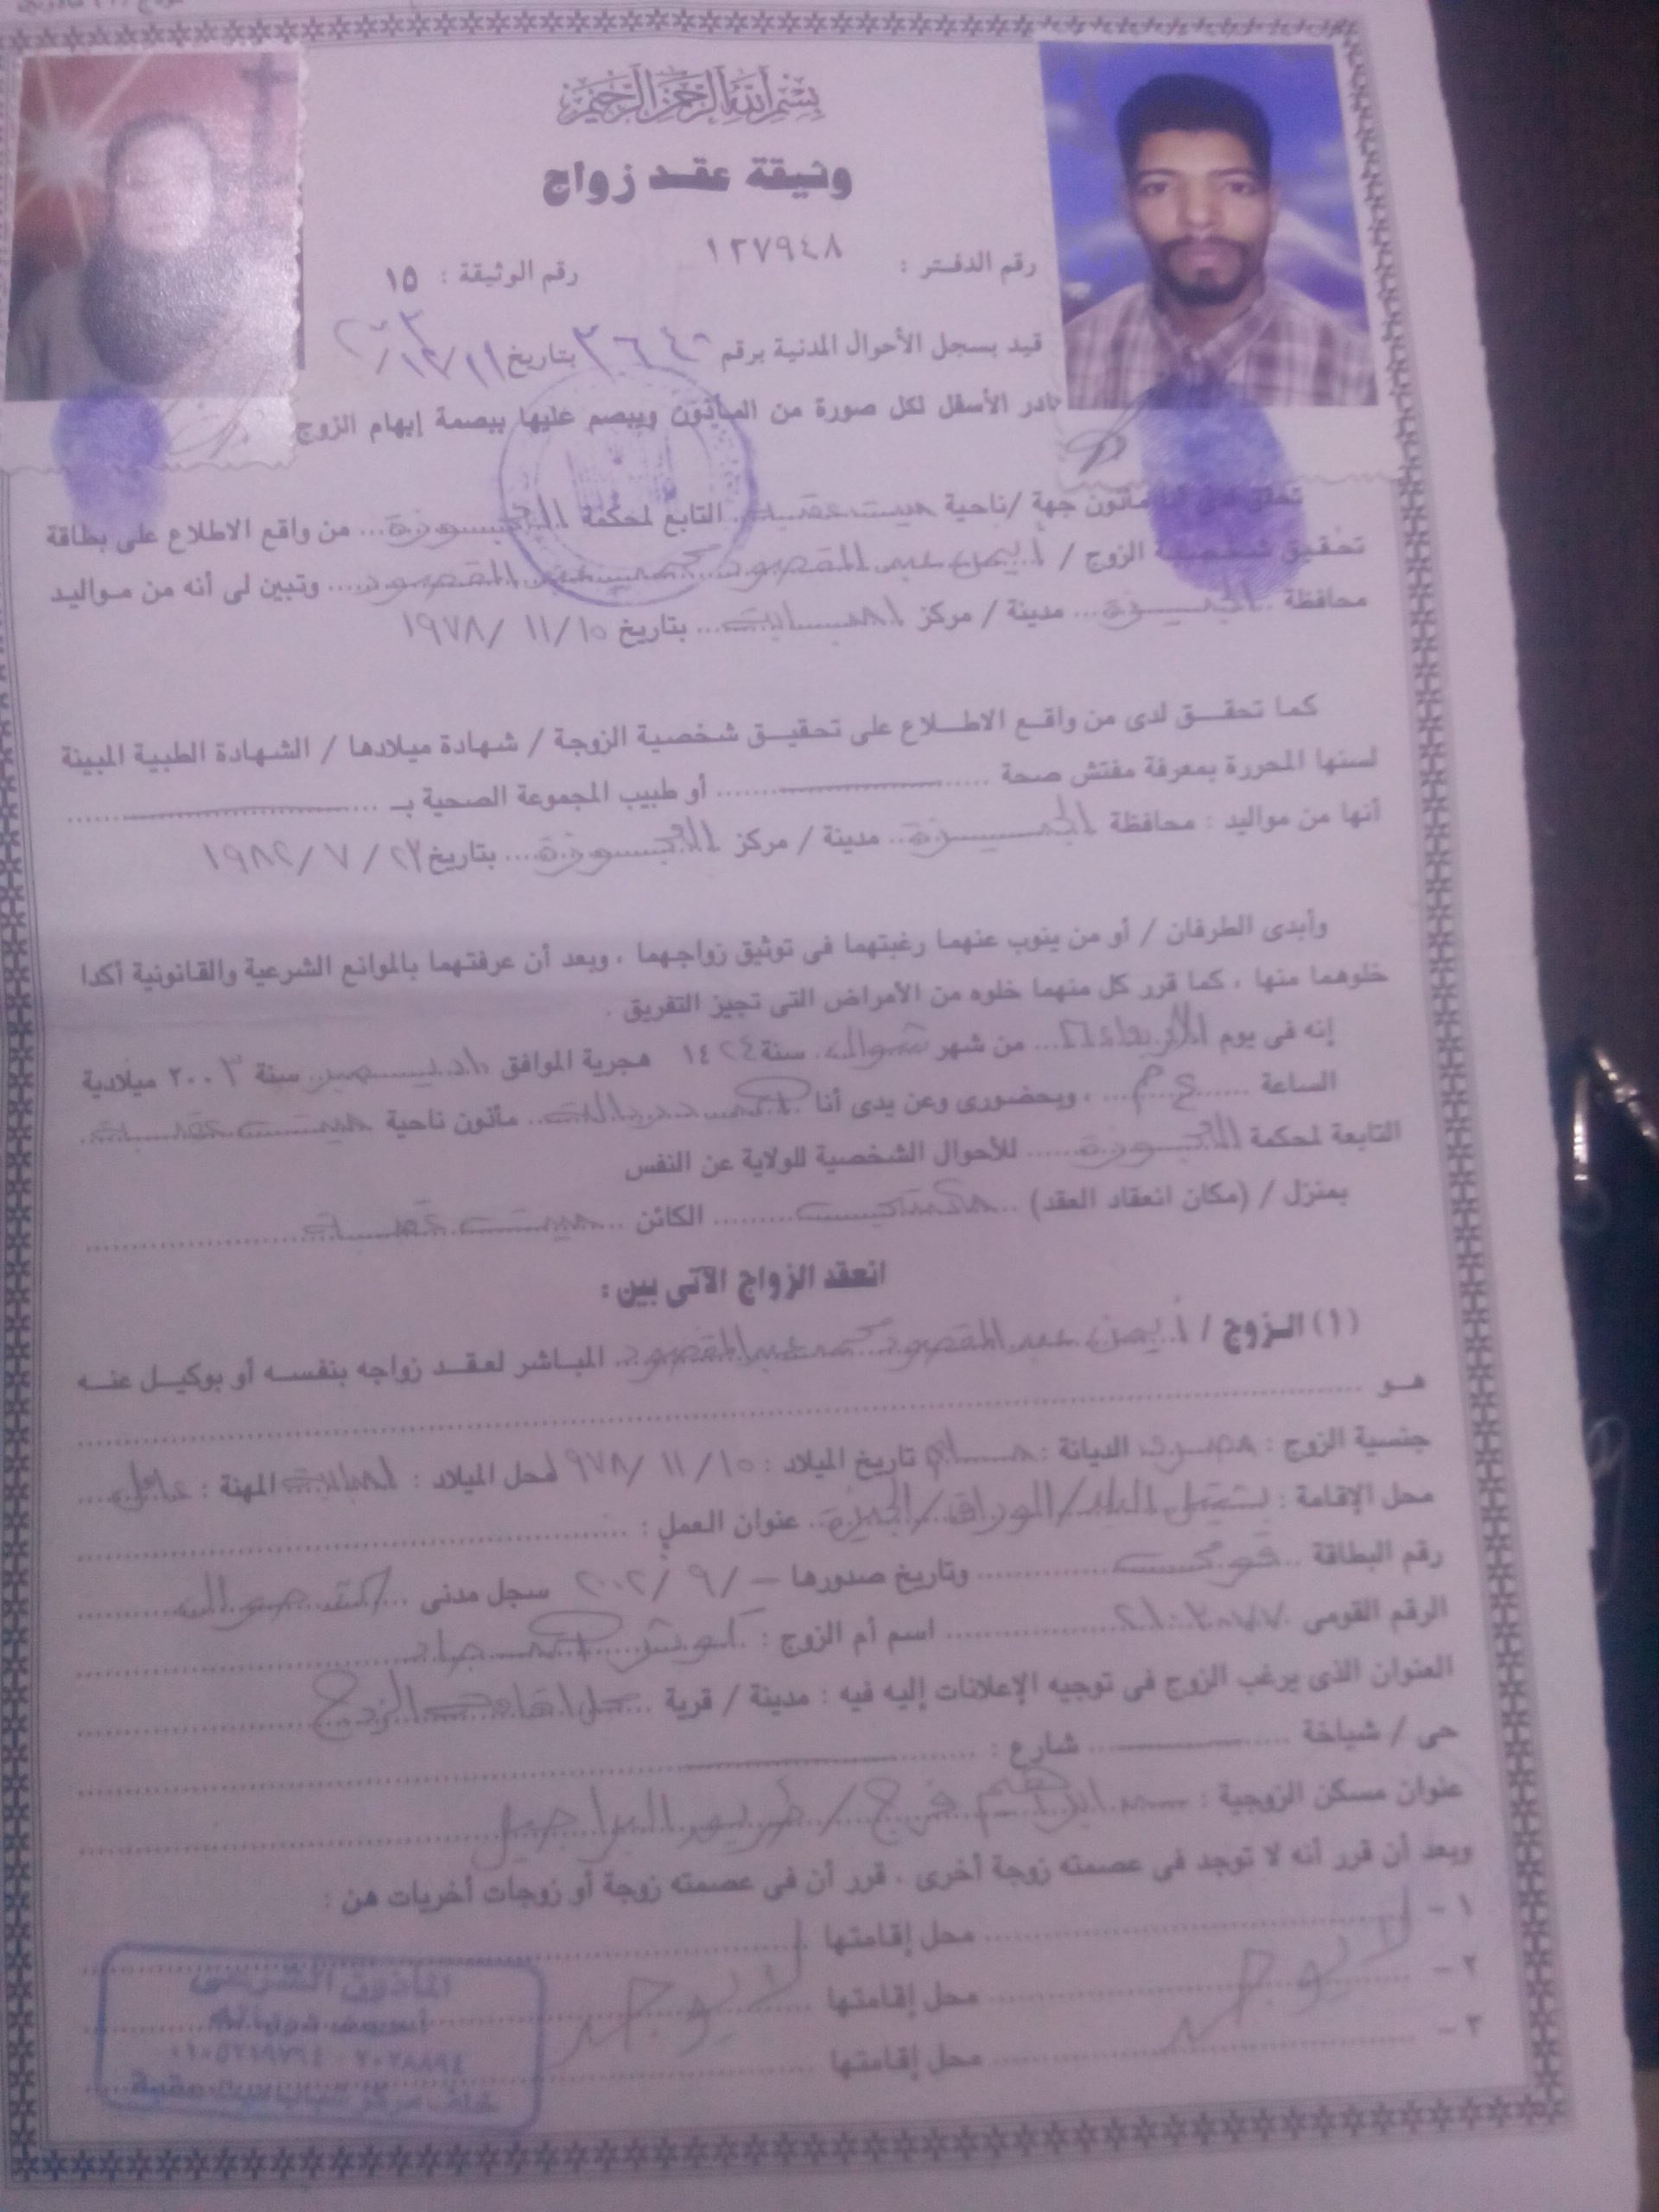 بسم الله الرحمن الرحيم
وثيقة عقد زواج
رقم الدفتر : ١٢٧٩٤٨ رقم الوثيقة : ١٥
قيد بسجل الأحوال المدنية برقم بتاريخ
نادر الأسفل لكل صورة من المأذون ويبصم عليها ببصمة إبهام الزوج
مأذون جهة / ناحية ميت عقبة التابع لمحكمة العجوزة من واقع الاطلاع على بطاقة
تحقيق شخصية الزوج / أيمن عبد المقصود محمد عبد المقصود وتبين لى أنه من مواليد
محافظة الجيزة مدينة / مركز امبابة بتاريخ ١٥/ ١١ /١٩٧٨
كما تحقق لدى من واقع الاطلاع على تحقيق شخصية الزوجة / شهادة ميلادها / الشهادة الطبية المبينة
لسنها المحررة بمعرفة مفتش صحة أو طبيب المجموعة الصحية بـ
أنها من مواليد : محافظة الجيزة مدينة / مركز العجوزة بتاريخ ٢٧/ ٧ /١٩٨٢
وأبدى الطرفان / أو من ينوب عنهما رغبتهما فى توثيق زواجهما ، وبعد أن عرفتهما بالموانع الشرعية والقانونية أكدا
خلوهما منها ، كما قرر كل منهما خلوه من الأمراض التى تجيز التفريق .
إنه فى يوم الأربعاء ١٦ من شهر شوال سنة ١٤٢٤ هجرية الموافق ١٠ ديسمبر سنة ٢٠٠٣ ميلادية
الساعة ٤ م ، وبحضورى وعن يدى أنا مأذون ناحية ميت عقبة
التابعة لمحكمة العجوزة للأحوال الشخصية للولاية عن النفس
بمنزل / (مكان انعقاد العقد) مكتبى الكائن ميت عقبة
انعقد الزواج الآتى بين :
(١) الزوج / أيمن عبد المقصود محمد عبد المقصود المباشر لعقد زواجه بنفسه أو بوكيل عنه
هو
جنسية الزوج : مصرى الديانة : مسلم تاريخ الميلاد : ١٥/ ١١ /٩٧٨ محل الميلاد : امبابة المهنة : عامل
محل الإقامة : بشتيل البلد / الوراق / الجيزة عنوان العمل :
رقم البطاقة قومى وتاريخ صدورها - / ٩ /٢٠٠٢ سجل مدنى
الرقم القومى اسم أم الزوج :
العنوان الذى يرغب الزوج فى توجيه الإعلانات إليه فيه : مدينة / قرية محل إقامة الزوج
حى / شياخة شارع :
عنوان مسكن الزوجية : ابراهيم فرج / طريق البراجيل
وبعد أن قرر أنه لا توجد فى عصمته زوجة أخرى . قرر أن فى عصمته زوجة أو زوجات أخريات هن :
١ - محل إقامتها
٢ - لا يوجد محل إقامتها لا يوجد
٣ - محل إقامتها
المأذون الشرعى
خلف مركز شباب ميت عقبة